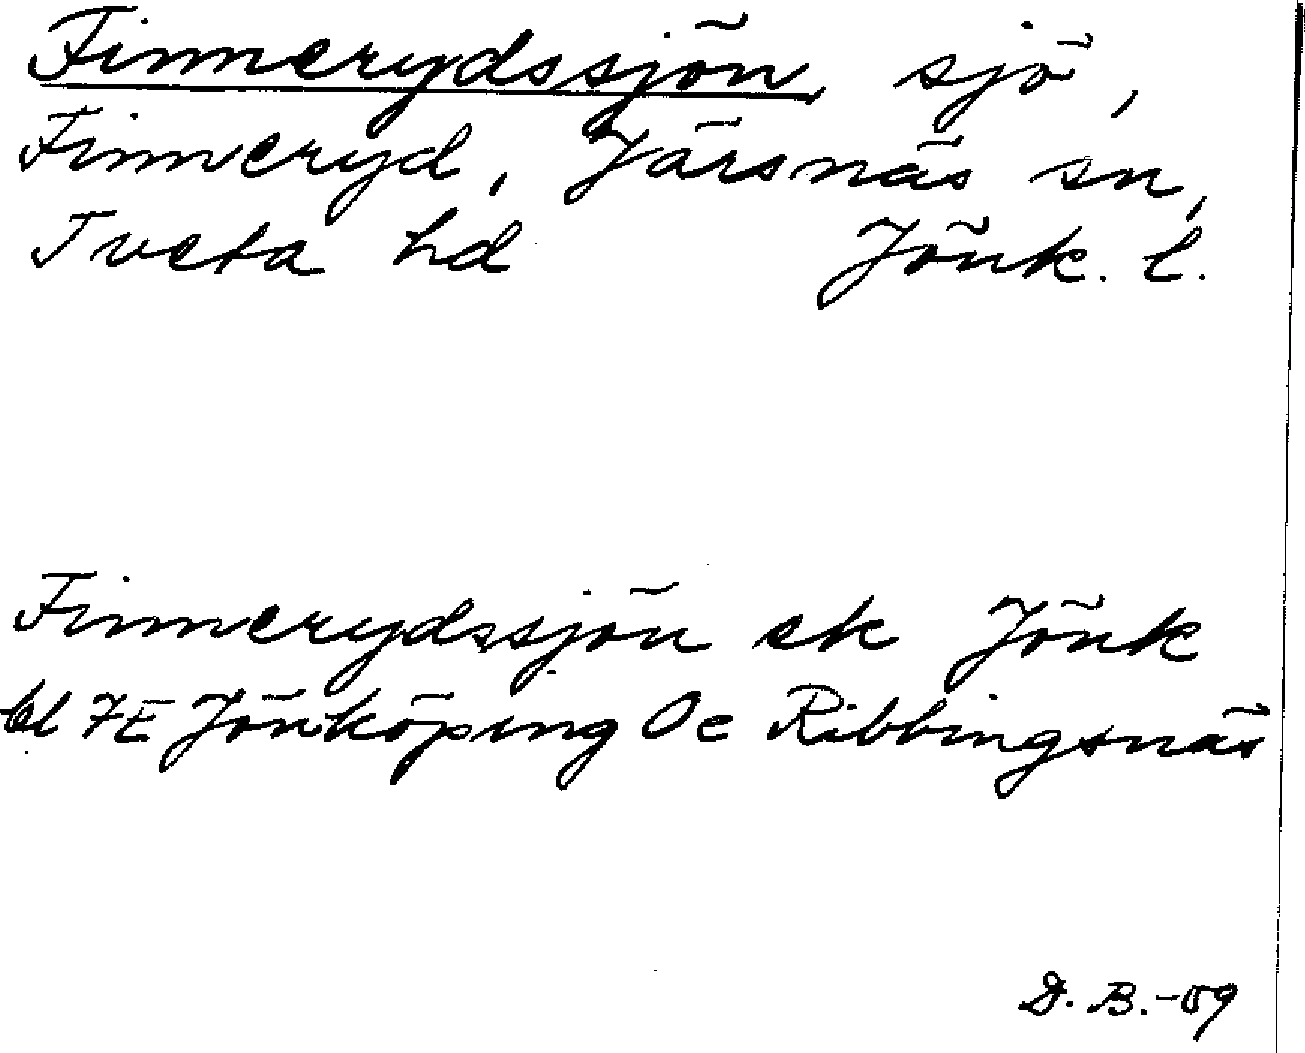 Finnerydssjön, sjö,
Finneryd, Järsnäs sn,
Tveta hd Jönk. l.
Finnerydssjön ek Jönk
bl 7E Jönköping Oc Ribbingsnäs
D. B. -59